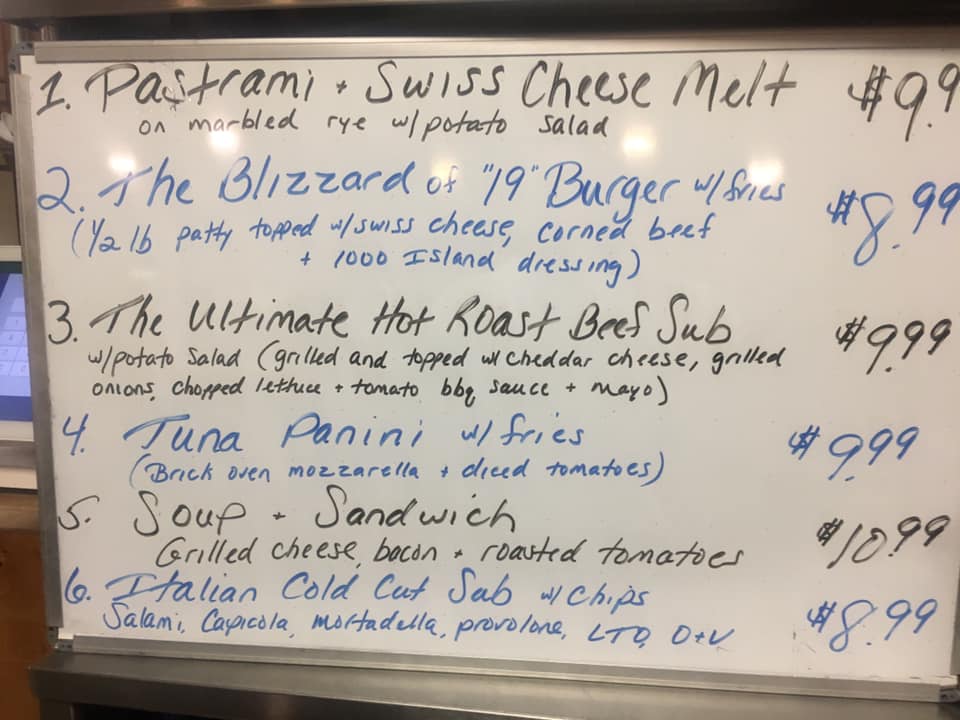 1. Pastrami + Swiss Cheese Melt $9.9
on marbled rye w/potato salad
2. The Blizzard of "19" Burger w/fries $8.99
(1/2 lb patty topped w/swiss cheese, corned beef
+ 1000 Island dressing)
3. The Ultimate Hot Roast Beef Sub $9.99
w/potato salad (grilled and topped w/ cheddar cheese, grilled
onions, chopped lettuce + tomato, bbq sauce + mayo)
4. Tuna Panini w/ fries $9.99
(Brick oven mozzarella + diced tomatoes)
5. Soup + Sandwich $10.99
Grilled cheese, bacon + roasted tomatoes
6. Italian Cold Cut Sub w/ Chips $8.99
Salami, Capicola, mortadella, provolone, LTO, O+V